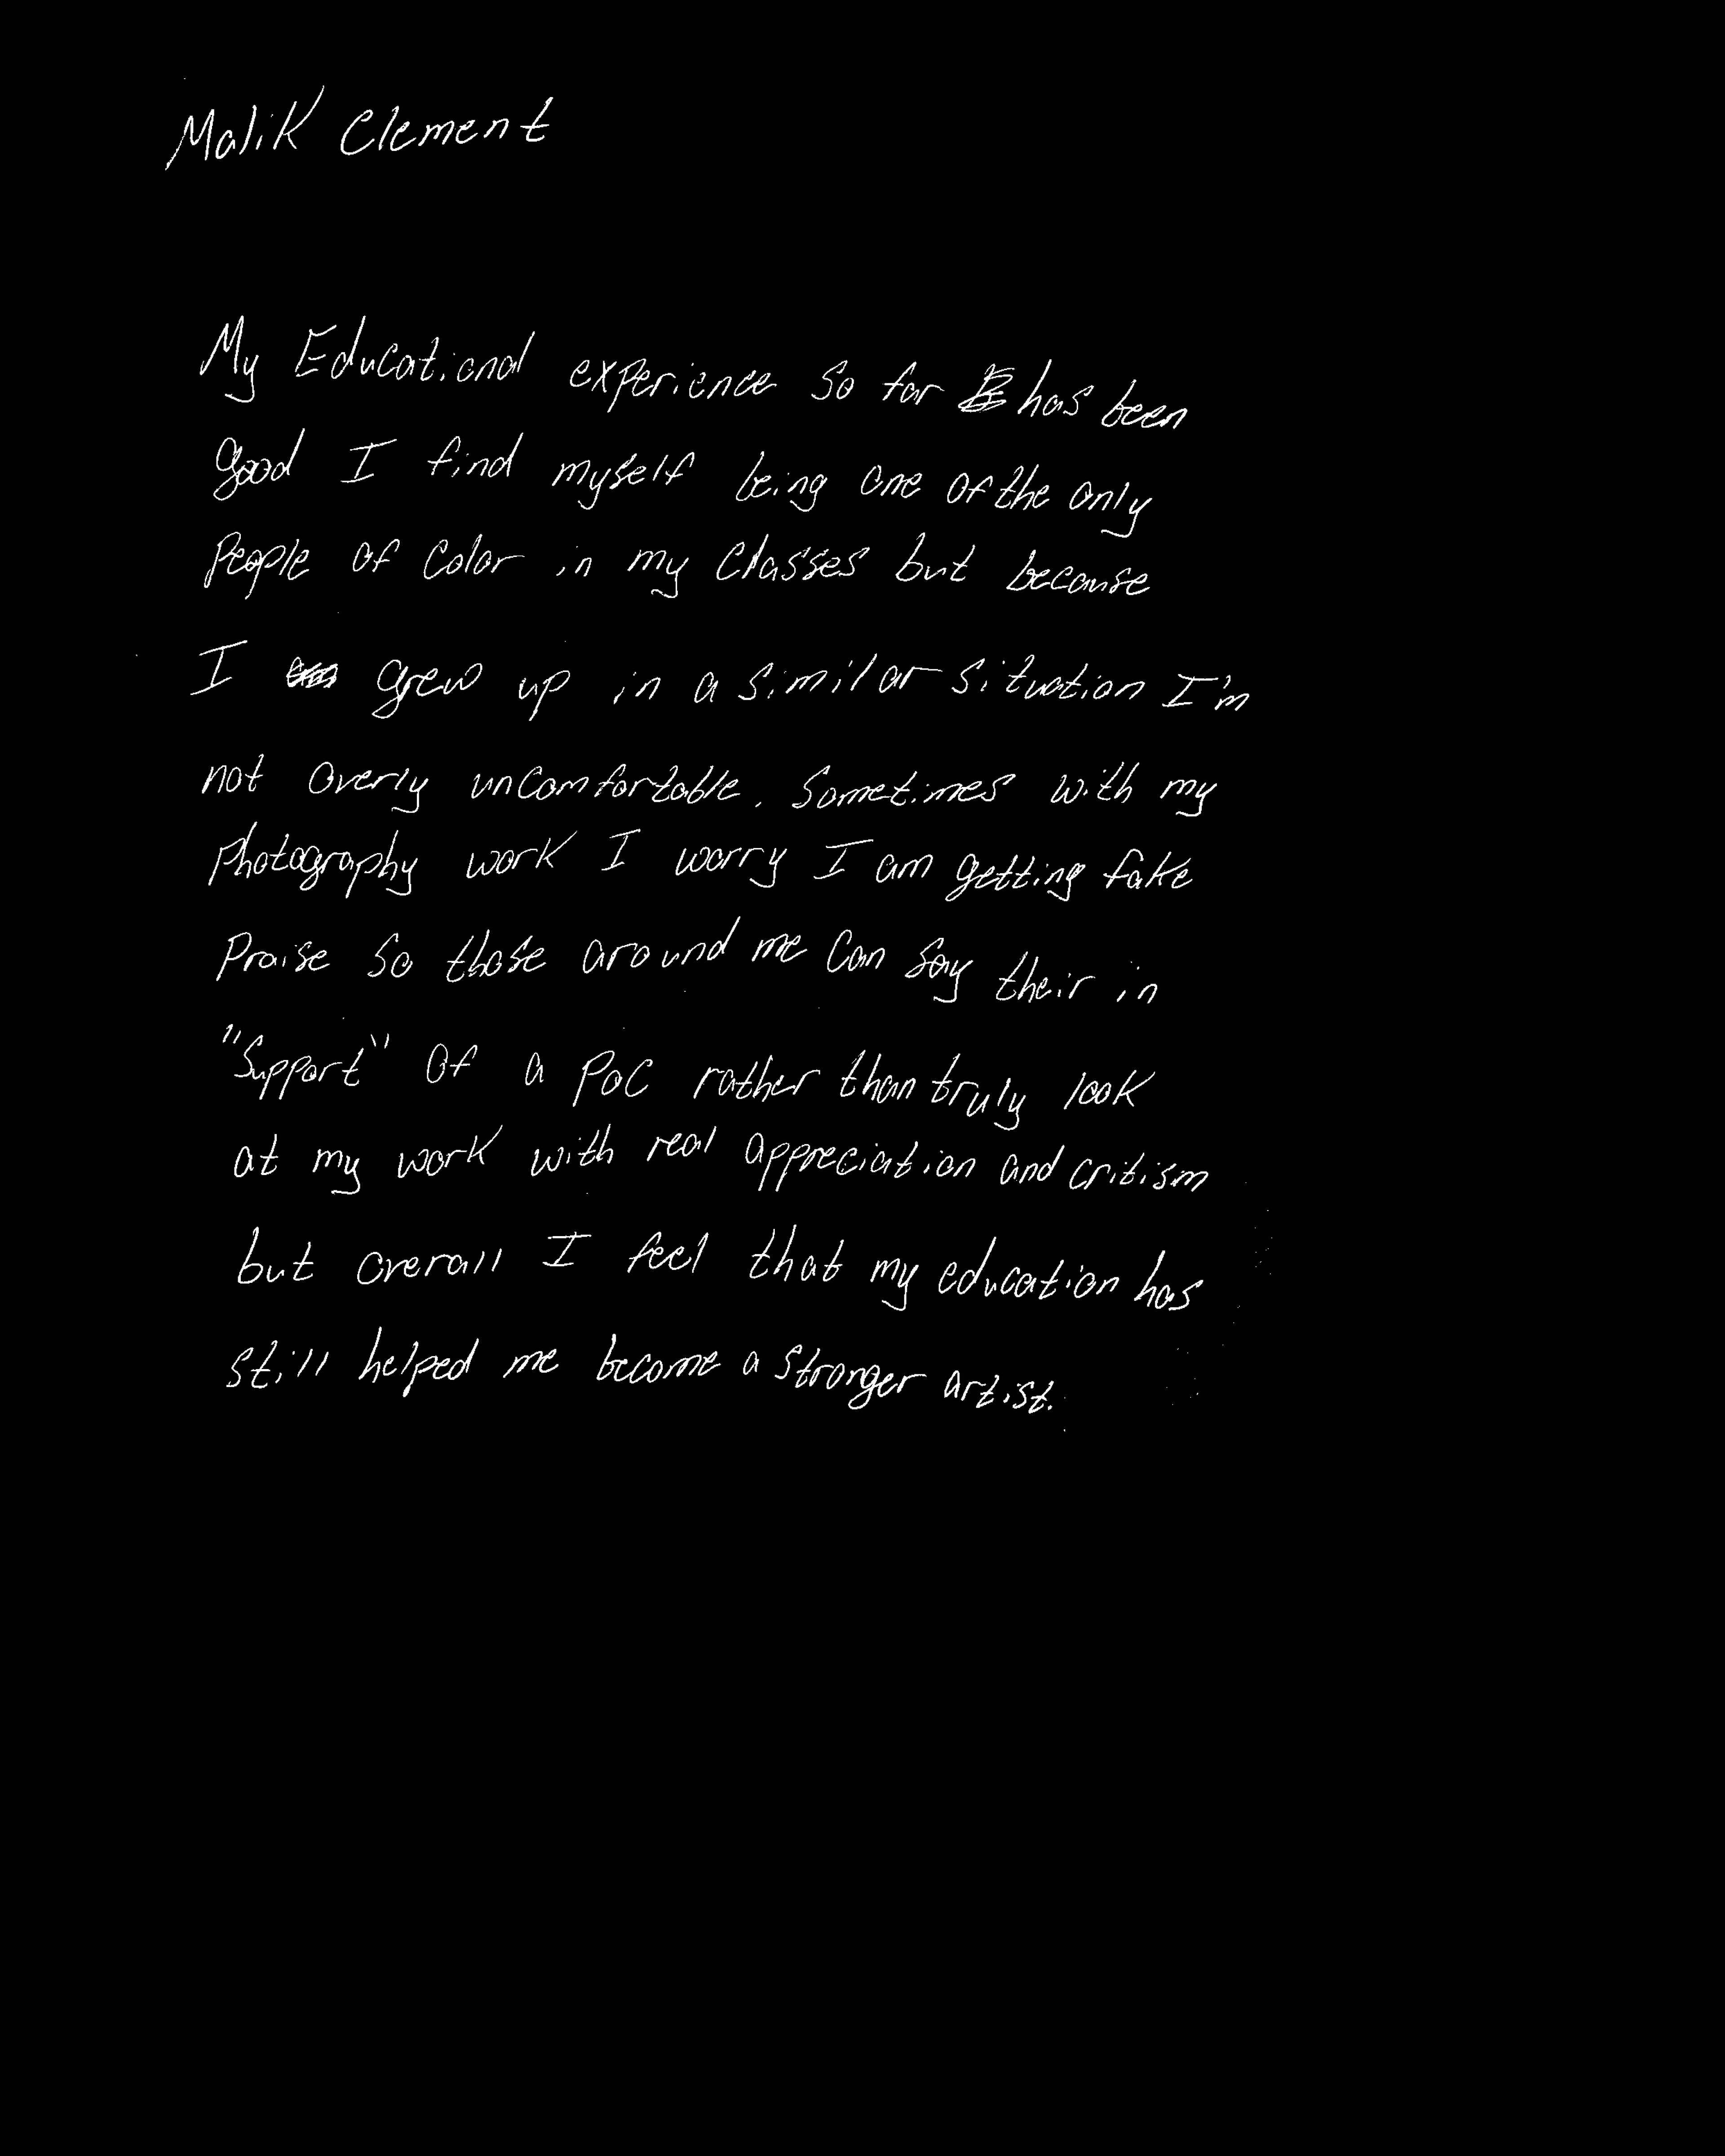 Malik Clement
My Educational experience so far has been
good I find myself being one of the only
People of Color in my Classes but because
I grew up in a similar situation I'm
not overly uncomfortable. Sometimes with my
Photography work I worry I am getting fake
Praise So those around me can say their in
"Support" of a POC rather than truly look
at my work with real appreciation and critism
but overall I feel that my education has
still helped me become a stronger artist.